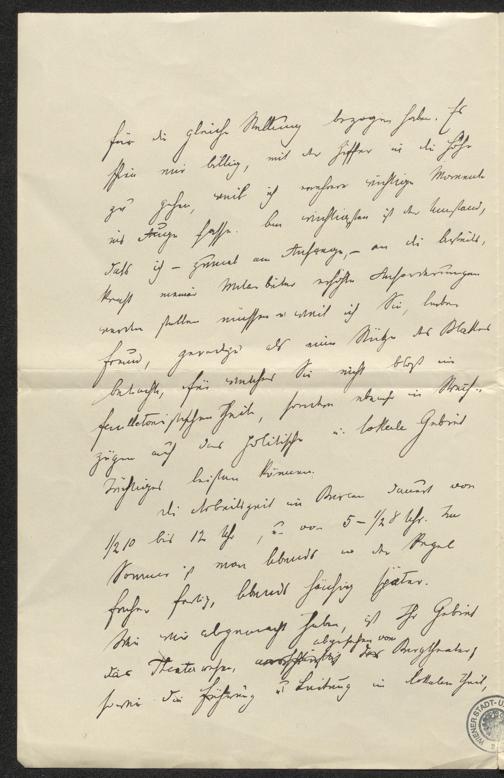 für die gleiche Stellung bezogen haben. Es
schien mir billig, mit der Ziffer in die Höhe
zu gehen, weil ich mehrere wichtige Momente
ins Auge fasse. Am wichtigsten ist der Umstand,
daß ich – zumal am Anfange, – an die
Kraft meiner Mitarbeiter erhöhte Anforderungen
werde stellen müssen u. weil ich Sie, lieber
Freund, geradezu als eine Stütze des Blattes
betrachte, für welches Sie nicht bloß im
feuilletonistischen Theile, sondern ebenso in
zügen auf das politische u. lokale Gebiet
Tüchtiges leisten können.
Die Arbeitszeit im Bureau dauert von
1/2 10 bis 12 Uhr, u. von 5 – 1/2 8 Uhr. Im
Sommer ist man Abends in der Regel
früher fertig, Abends häufig später.
Wie wir abgemacht haben, ist Ihr Gebiet
das Theaterwesen, abgesehen vom Burgtheater,
sowie die Führung u. Leitung im lokalen Theil,
WIENER STADT-U